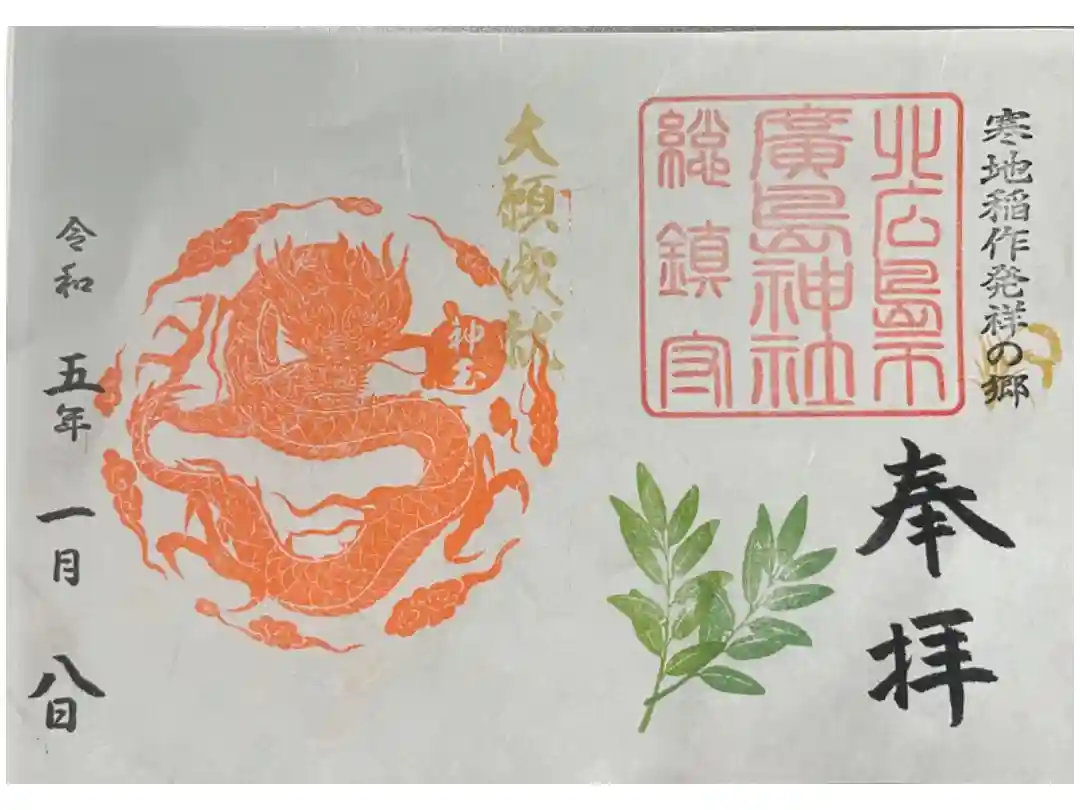 寒地稲作発祥の郷
奉拝
北広島市
廣島神社
総鎮守
大願成就
神玉
令和五年一月八日